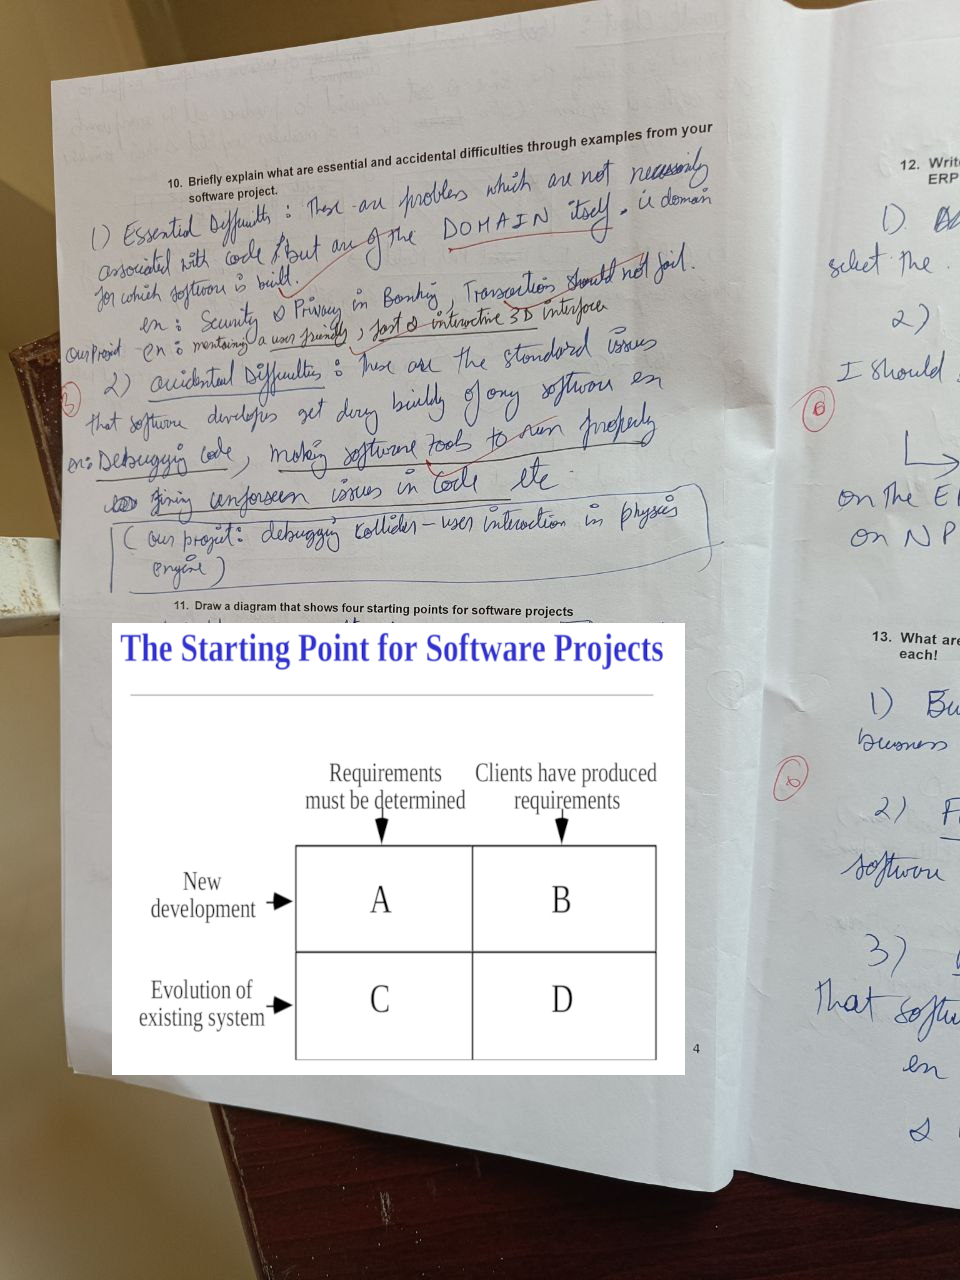 10. Briefly explain what are essential and accidental difficulties through examples from your
software project.
1) Essential Difficults : These are problems which are not necessarily
associated with code but are of the DOMAIN itself. ie domain
for which software is built.
en : Security & Privacy in Banking, Transaction should not fail.
Our Project en : a user friendly, fast & interactive 3D interface
3
2) accidental Difficulties : These are the standard issues
that software developers get during building of any software en
en: Debugging code, making software tools to run properly
fixing unforseen issues in code etc.
( our project: debugging collider - user interaction in physics
engine )
11. Draw a diagram that shows four starting points for software projects
The Starting Point for Software Projects
Requirements
must be determined
Clients have produced
requirements
New
development
A
B
Evolution of
existing system
C
D
4
12. Writ
ERP
1).
select the
2)
I should
on the
on NP
13. What are
each!
1) Bu
business
2) F
software
3)
that softw
en